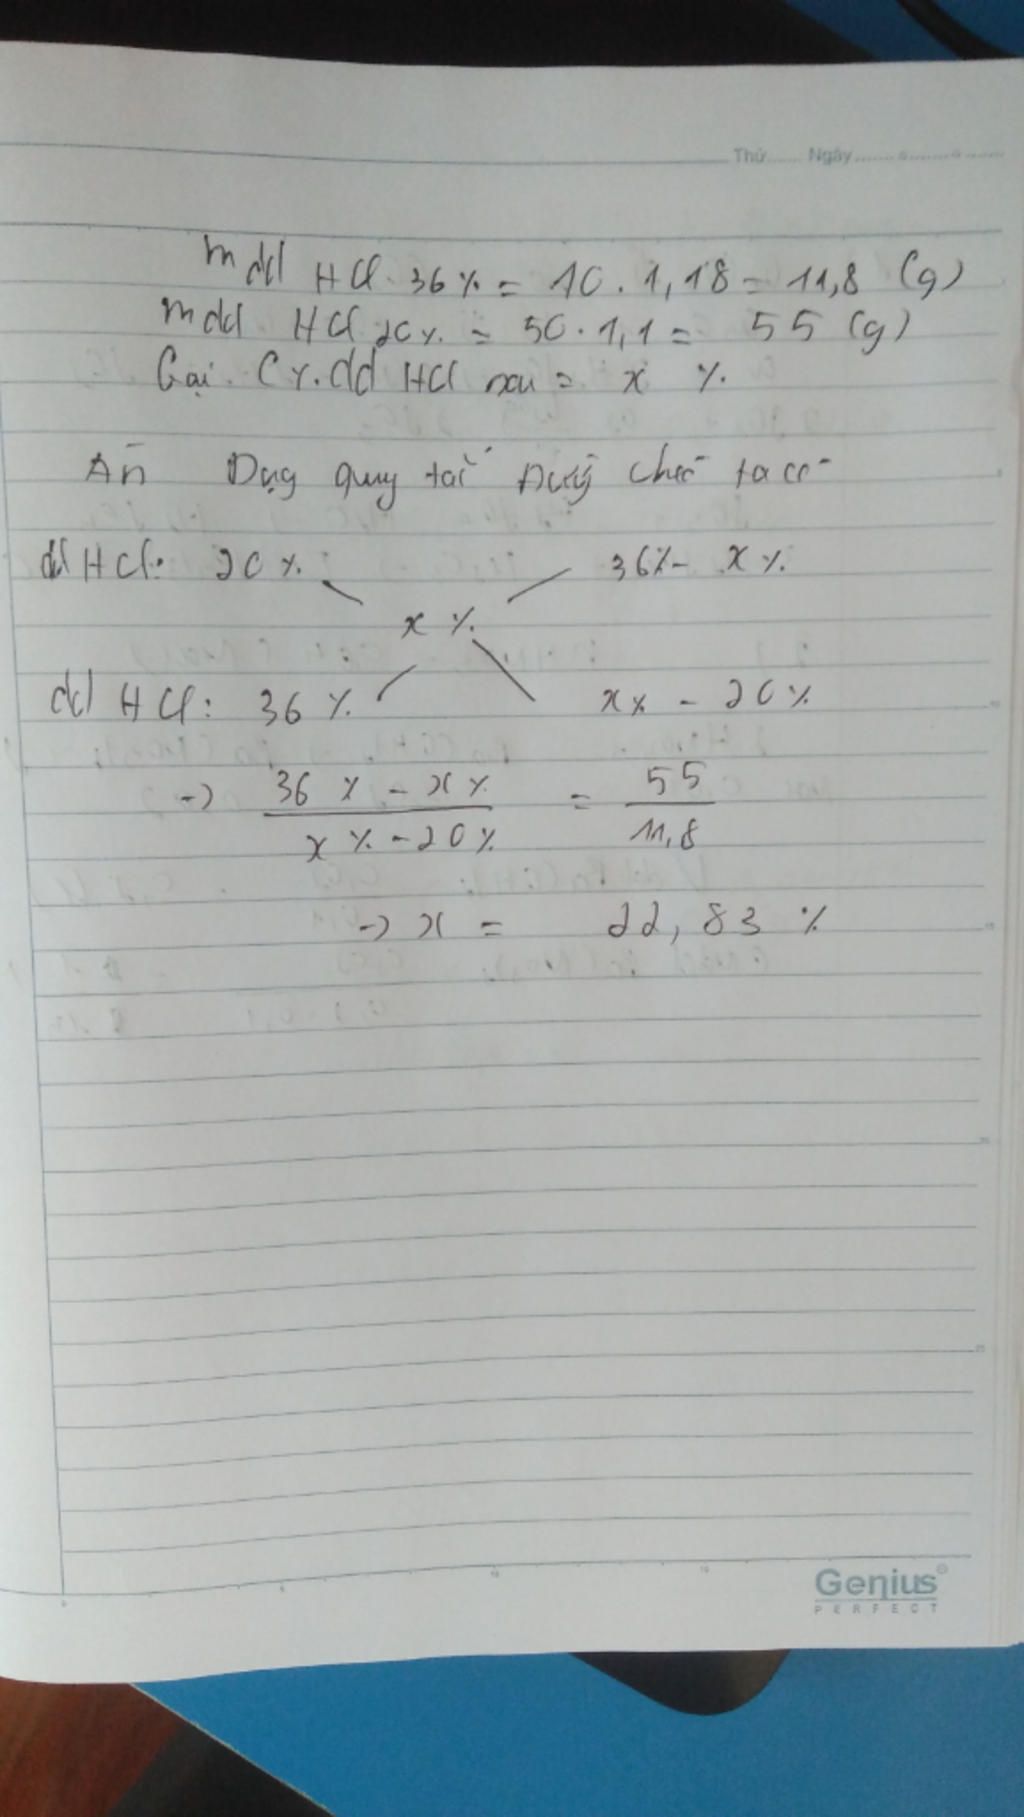 Thứ...... Ngày..............
mdd HCl 36% = 10 . 1,18 = 11,8 (g)
mdd HCl 20% = 50 . 1,1 = 55 (g)
Gọi C%dd HCl sau = x %
Áp Dụng quy tắc đường chéo ta có
dd HCl: 20% 36% - x%
x %
dd HCl: 36% x% - 20%
-> 36% - x% / x% - 20% = 55 / 11,8
-> x = 22,83 %
Genius
PERFECT